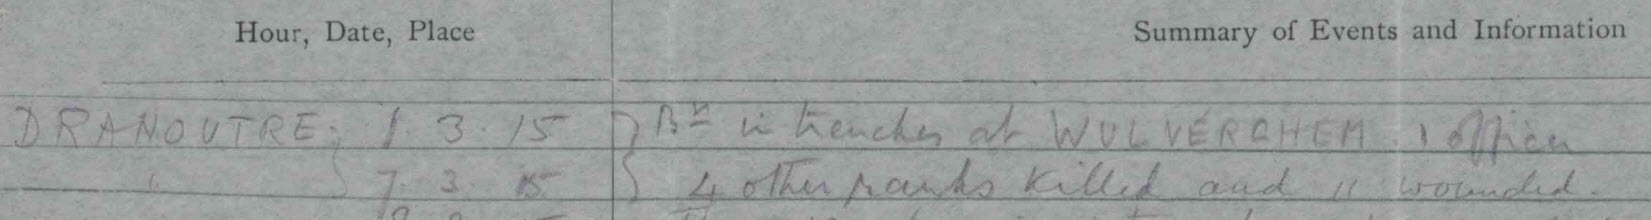 Hour, Date, Place
Summary of Events and Information
DRANOUTRE, 1.3.15 } Bn in trenches at WULVERGHEM. 1 officer
" 7.3.15 } 4 other ranks killed and 11 wounded.